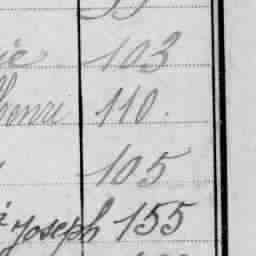 103
henri 110.
105
Joseph 155